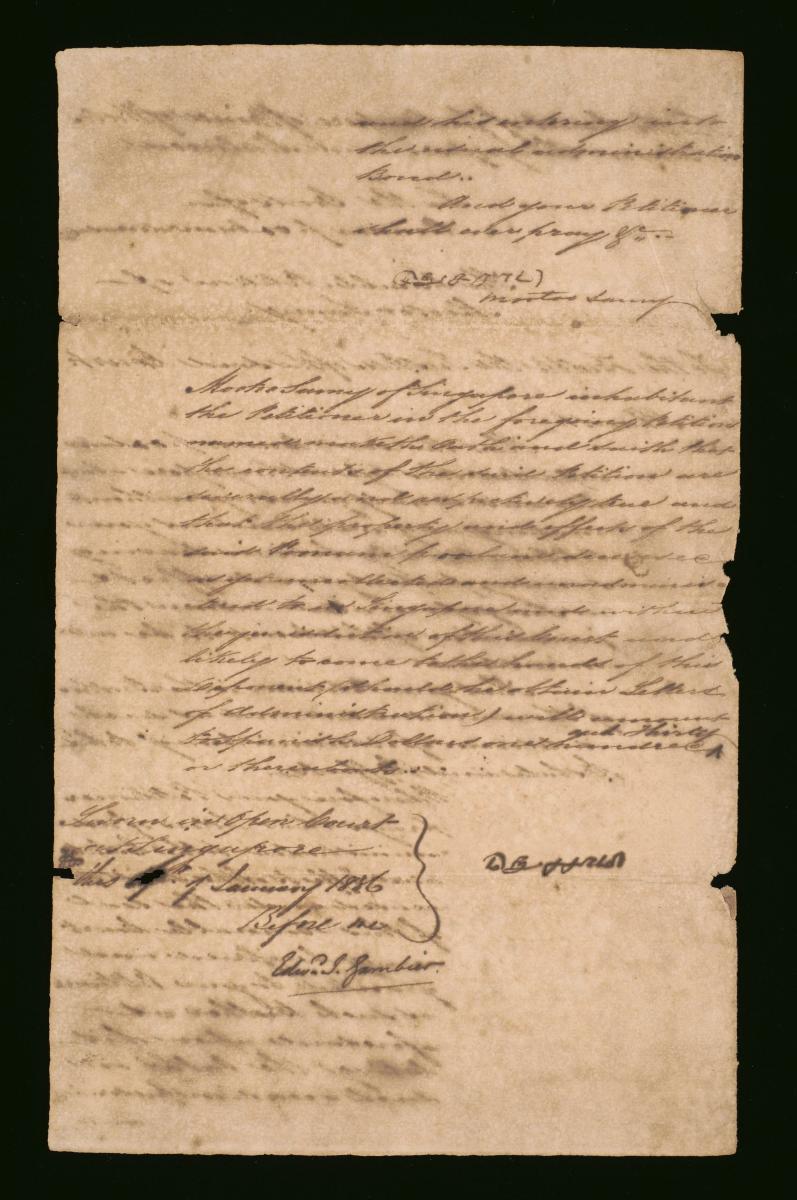 and his entering into
the usual administration
Bond..
And your Petitioner
shall ever pray &c
Mootoo Samy
Mootoo Samy of Singapore inhabitant
the Petitioner in the foregoing Petition
named maketh Oath and saith that
the contents of the said Petition are
severally and respectively true and
that the property and effects of the
said deceased
as yet uncollected and unadminis
tered to in Singapore and within
the jurisdiction of this Court and
likely to come to the hands of this
Deponent (should he obtain Letters
of Administration) will amount
to Spanish Dollars one hundred
and Thirty
or thereabouts..
Sworn in Open Court
at Singapore
this of January 1836
Before me
Edwd. J. Gambier.